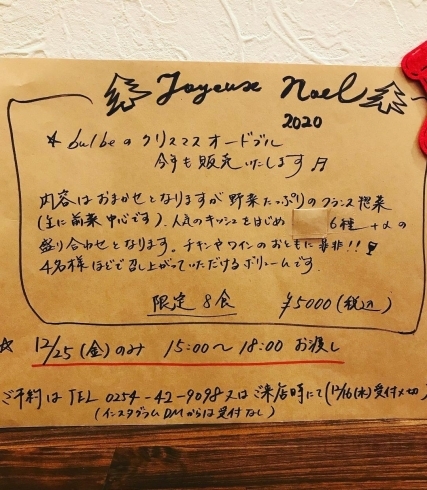 Joyeuse Noel
2020
☆ bulbeのクリスマスオードブル
今年も販売いたします♬
内容はおまかせとなりますが野菜たっぷりのフランス惣菜
(主に前菜中心です)、人気のキッシュをはじめ 6種+αの
盛り合わせとなります。チキンやワインのおともに是非!!
4名様ほどで召し上がっていただけるボリュームです。
限定 8食 ¥5000(税込)
☆ 12/25(金)のみ 15:00〜18:00 お渡し
ご予約はTEL 0254-42-9098又はご来店時にて(12/16(水)受付〆切)
(インスタグラムDMからは受付なし)